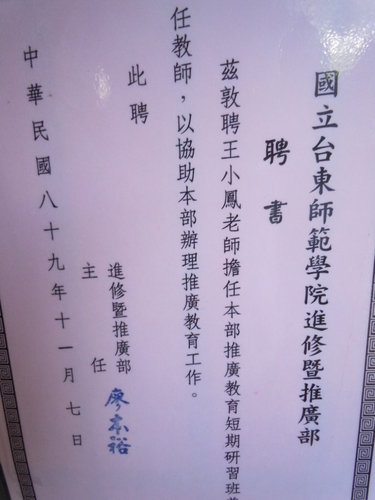 國立台東師範學院進修暨推廣部
聘書
茲敦聘王小鳳老師擔任本部推廣教育短期研習班
任教師，以協助本部辦理推廣教育工作。
此聘
進修暨推廣部
主任
廖本裕
中華民國八十九年十一月七日